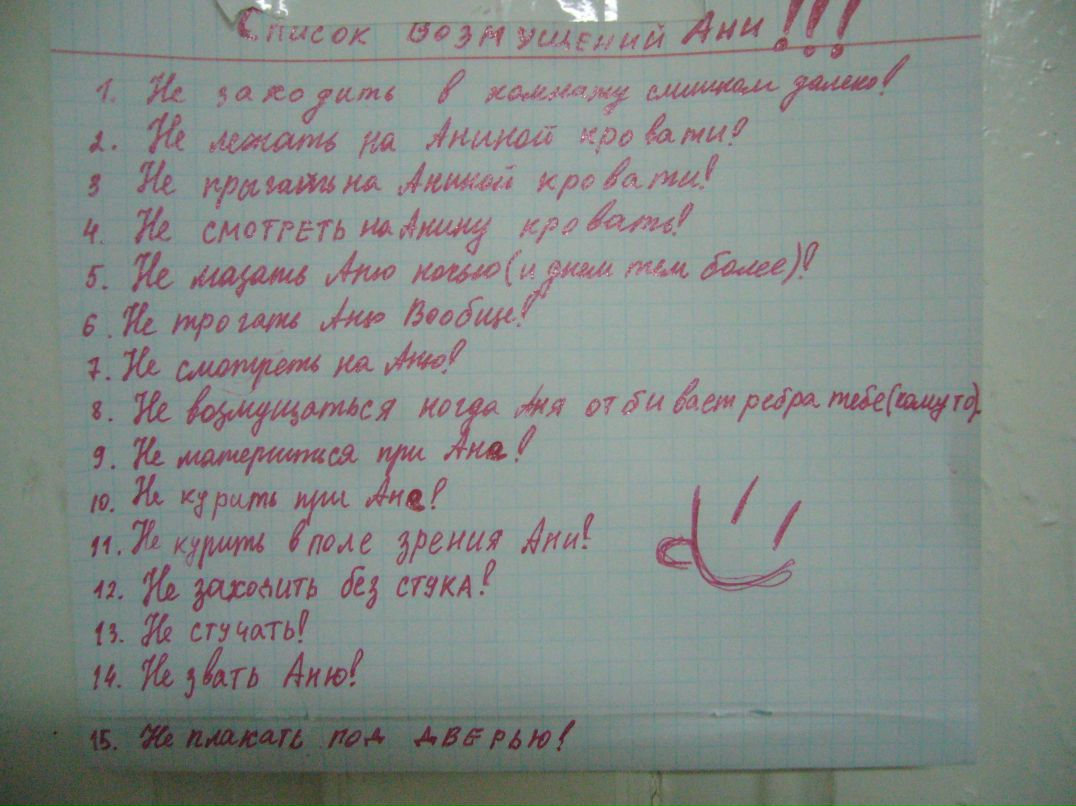 Список возмущений Ани!!!
1. Не заходить в комнату слишком далеко!
2. Не лежать на Аниной кровати!
3 Не прыгать на Аниной кровати!
4. Не СМОТРЕТЬ на Анину кровать!
5. Не мазать Аню ночью (и днем тем более)!
6. Не трогать Аню Вообще!
7. Не смотреть на Аню!
8. Не возмущаться когда Аня отбивает ребра тебе (кому то).
9. Не материться при Ане!
10. Не курить при Ане!
11. Не курить в поле зрения Ани!
12. Не заходить без СТУКА!
13. Не стучать!
14. Не звать Аню!
15. Не плакать под ДВЕРЬЮ!